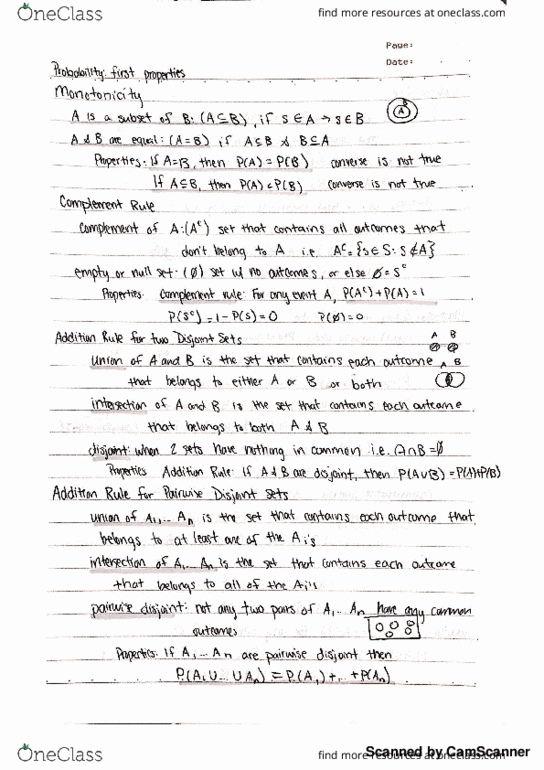 OneClass
find more resources at oneclass.com
Page:
Date:
Probability: first properties
Monotonicity
A is a subset of B: (A⊆B), if s∈A → s∈B
A & B are equal: (A=B) if A⊆B & B⊆A
Properties: If A=B, then P(A) = P(B) converse is not true
If A⊆B, then P(A) ≤ P(B) converse is not true
Complement Rule
Complement of A: (Aᶜ) set that contains all outcomes that
don't belong to A i.e. Aᶜ = {s∈S: s∉A}
empty or null set: (∅) set w/ no outcomes, or else ∅=Sᶜ
Properties: Complement rule: For any event A, P(Aᶜ)+P(A)=1
P(Sᶜ)=1-P(S)=0 P(∅)=0
Addition Rule for two Disjoint Sets
A B
union of A and B is the set that contains each outcome
A B
that belongs to either A or B or both
intersection of A and B is the set that contains each outcome
that belongs to both A & B
disjoint: when 2 sets have nothing in common i.e. A∩B=∅
Properties Addition Rule: If A & B are disjoint, then P(A∪B) = P(A)+P(B)
Addition Rule for Pairwise Disjoint Sets
union of A₁,... Aₙ is the set that contains each outcome that
belongs to at least one of the Aᵢ's
intersection of A₁... Aₙ is the set that contains each outcome
that belongs to all of the Aᵢ's
pairwise disjoint: not any two pairs of A₁... Aₙ have any common
outcomes
Properties: If A₁... Aₙ are pairwise disjoint then
P(A₁∪...∪Aₙ) = P(A₁)+...+P(Aₙ)
OneClass
find more resources at oneclass.com
Scanned by CamScanner